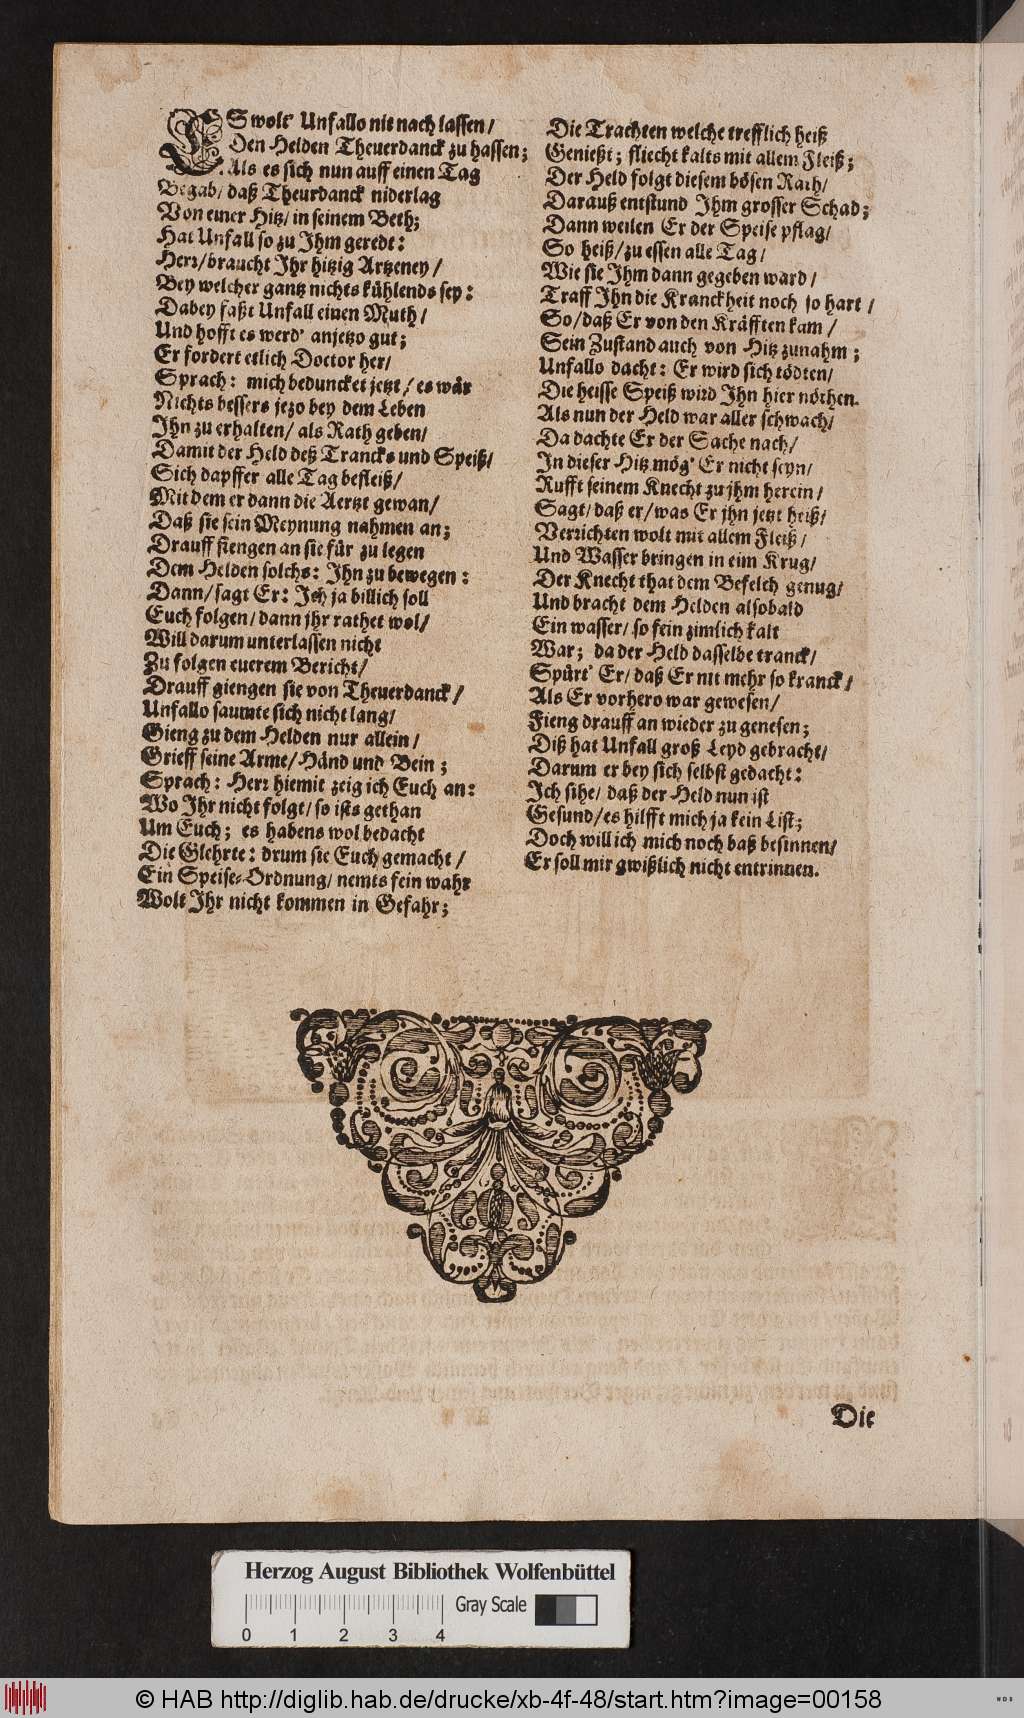 ES wolt' Unfallo nit nach lassen/
Den Helden Theuerdanck zu hassen;
Als es sich nun auff einen Tag
Begab/ daß Theurdanck niderlag
Von einer Hitz/ in seinem Beth;
Hat Unfall so zu Ihm geredt:
Herr/ braucht Ihr hitzig Artzeney/
Bey welcher gantz nichts kühlends sey:
Dabey faßt Unfall einen Muth/
Und hofft es werd' anjetzo gut;
Er fordert etlich Doctor her/
Sprach: mich beduncket jetzt/ es wär
Nichts bessers jezo bey dem Leben
Ihn zu erhalten/ als Rath geben/
Damit der Held deß Trancks und Speiß/
Sich dapffer alle Tag befleiß/
Mit dem er dann die Aertzt gewan/
Daß sie sein Meynung nahmen an;
Drauff fiengen an sie für zu legen
Dem Helden solchs: Ihn zu bewegen:
Dann/ sagt Er: Ich ja billich soll
Euch folgen/ dann jhr rathet wol/
Will darum unterlassen nicht
Zu folgen euerem Bericht/
Drauff giengen sie von Theuerdanck/
Unfallo saumte sich nicht lang/
Gieng zu dem Helden nur allein/
Grieff seine Arme/ Händ und Bein;
Sprach: Herr hiemit zeig ich Euch an:
Wo Ihr nicht folgt/ so ists gethan
Um Euch; es habens wol bedacht
Die Glehrte: drum sie Euch gemacht/
Ein Speise-Ordnung/ nemts fein wahr
Wolt Ihr nicht kommen in Gefahr;
Die Trachten welche trefflich heiß
Genießt; fliecht kalts mit allem Fleiß;
Der Held folgt diesem bösen Rath/
Darauß entstund Ihm grosser Schad;
Dann weilen Er der Speise pflag/
So heiß/ zu essen alle Tag/
Wie sie Ihm dann gegeben ward/
Traff Ihn die Kranckheit noch so hart/
So/ daß Er von den Kräfften kam/
Sein Zustand auch von Hitz zunahm;
Unfallo dacht: Er wird sich tödten/
Die heisse Speiß wird Ihn hier nöthen.
Als nun der Held war aller schwach/
Da dachte Er der Sache nach/
In dieser Hitz mög' Er nicht seyn/
Rufft seinem Knecht zu jhm herein/
Sagt/ daß er/ was Er jhn jetzt heiß/
Verrichten wolt mit allem Fleiß/
Und Wasser bringen in eim Krug/
Der Knecht that dem Befelch genug/
Und bracht dem Helden alsobald
Ein wasser/ so fein zimlich kalt
War; da der Held dasselbe tranck/
Spürt' Er/ daß Er nit mehr so kranck/
Als Er vorhero war gewesen/
Fieng drauff an wieder zu genesen;
Diß hat Unfall groß Leyd gebracht/
Darum er bey sich selbst gedacht:
Ich sihe/ daß der Held nun ist
Gesund/ es hilfft mich ja kein List;
Doch will ich mich noch baß besinnen/
Er soll mir gwißlich nicht entrinnen.
Die
Herzog August Bibliothek Wolfenbüttel
Gray Scale
0 1 2 3 4
© HAB http://diglib.hab.de/drucke/xb-4f-48/start.htm?image=00158